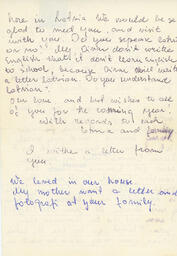 here in Latvia We would be so
glad to meet you, and visit
with you. Do you speack Latvian
or no? My didn't write
English that it don't learn english
to school, because will write
a letter latvian. Do you understand
latvian?
Our love and best wishes to all
of you for the coming year,
with regards to each
and family
I withe a letter from
you.
We lived in our house.
My mother want a letter and
fotografi at your formily.